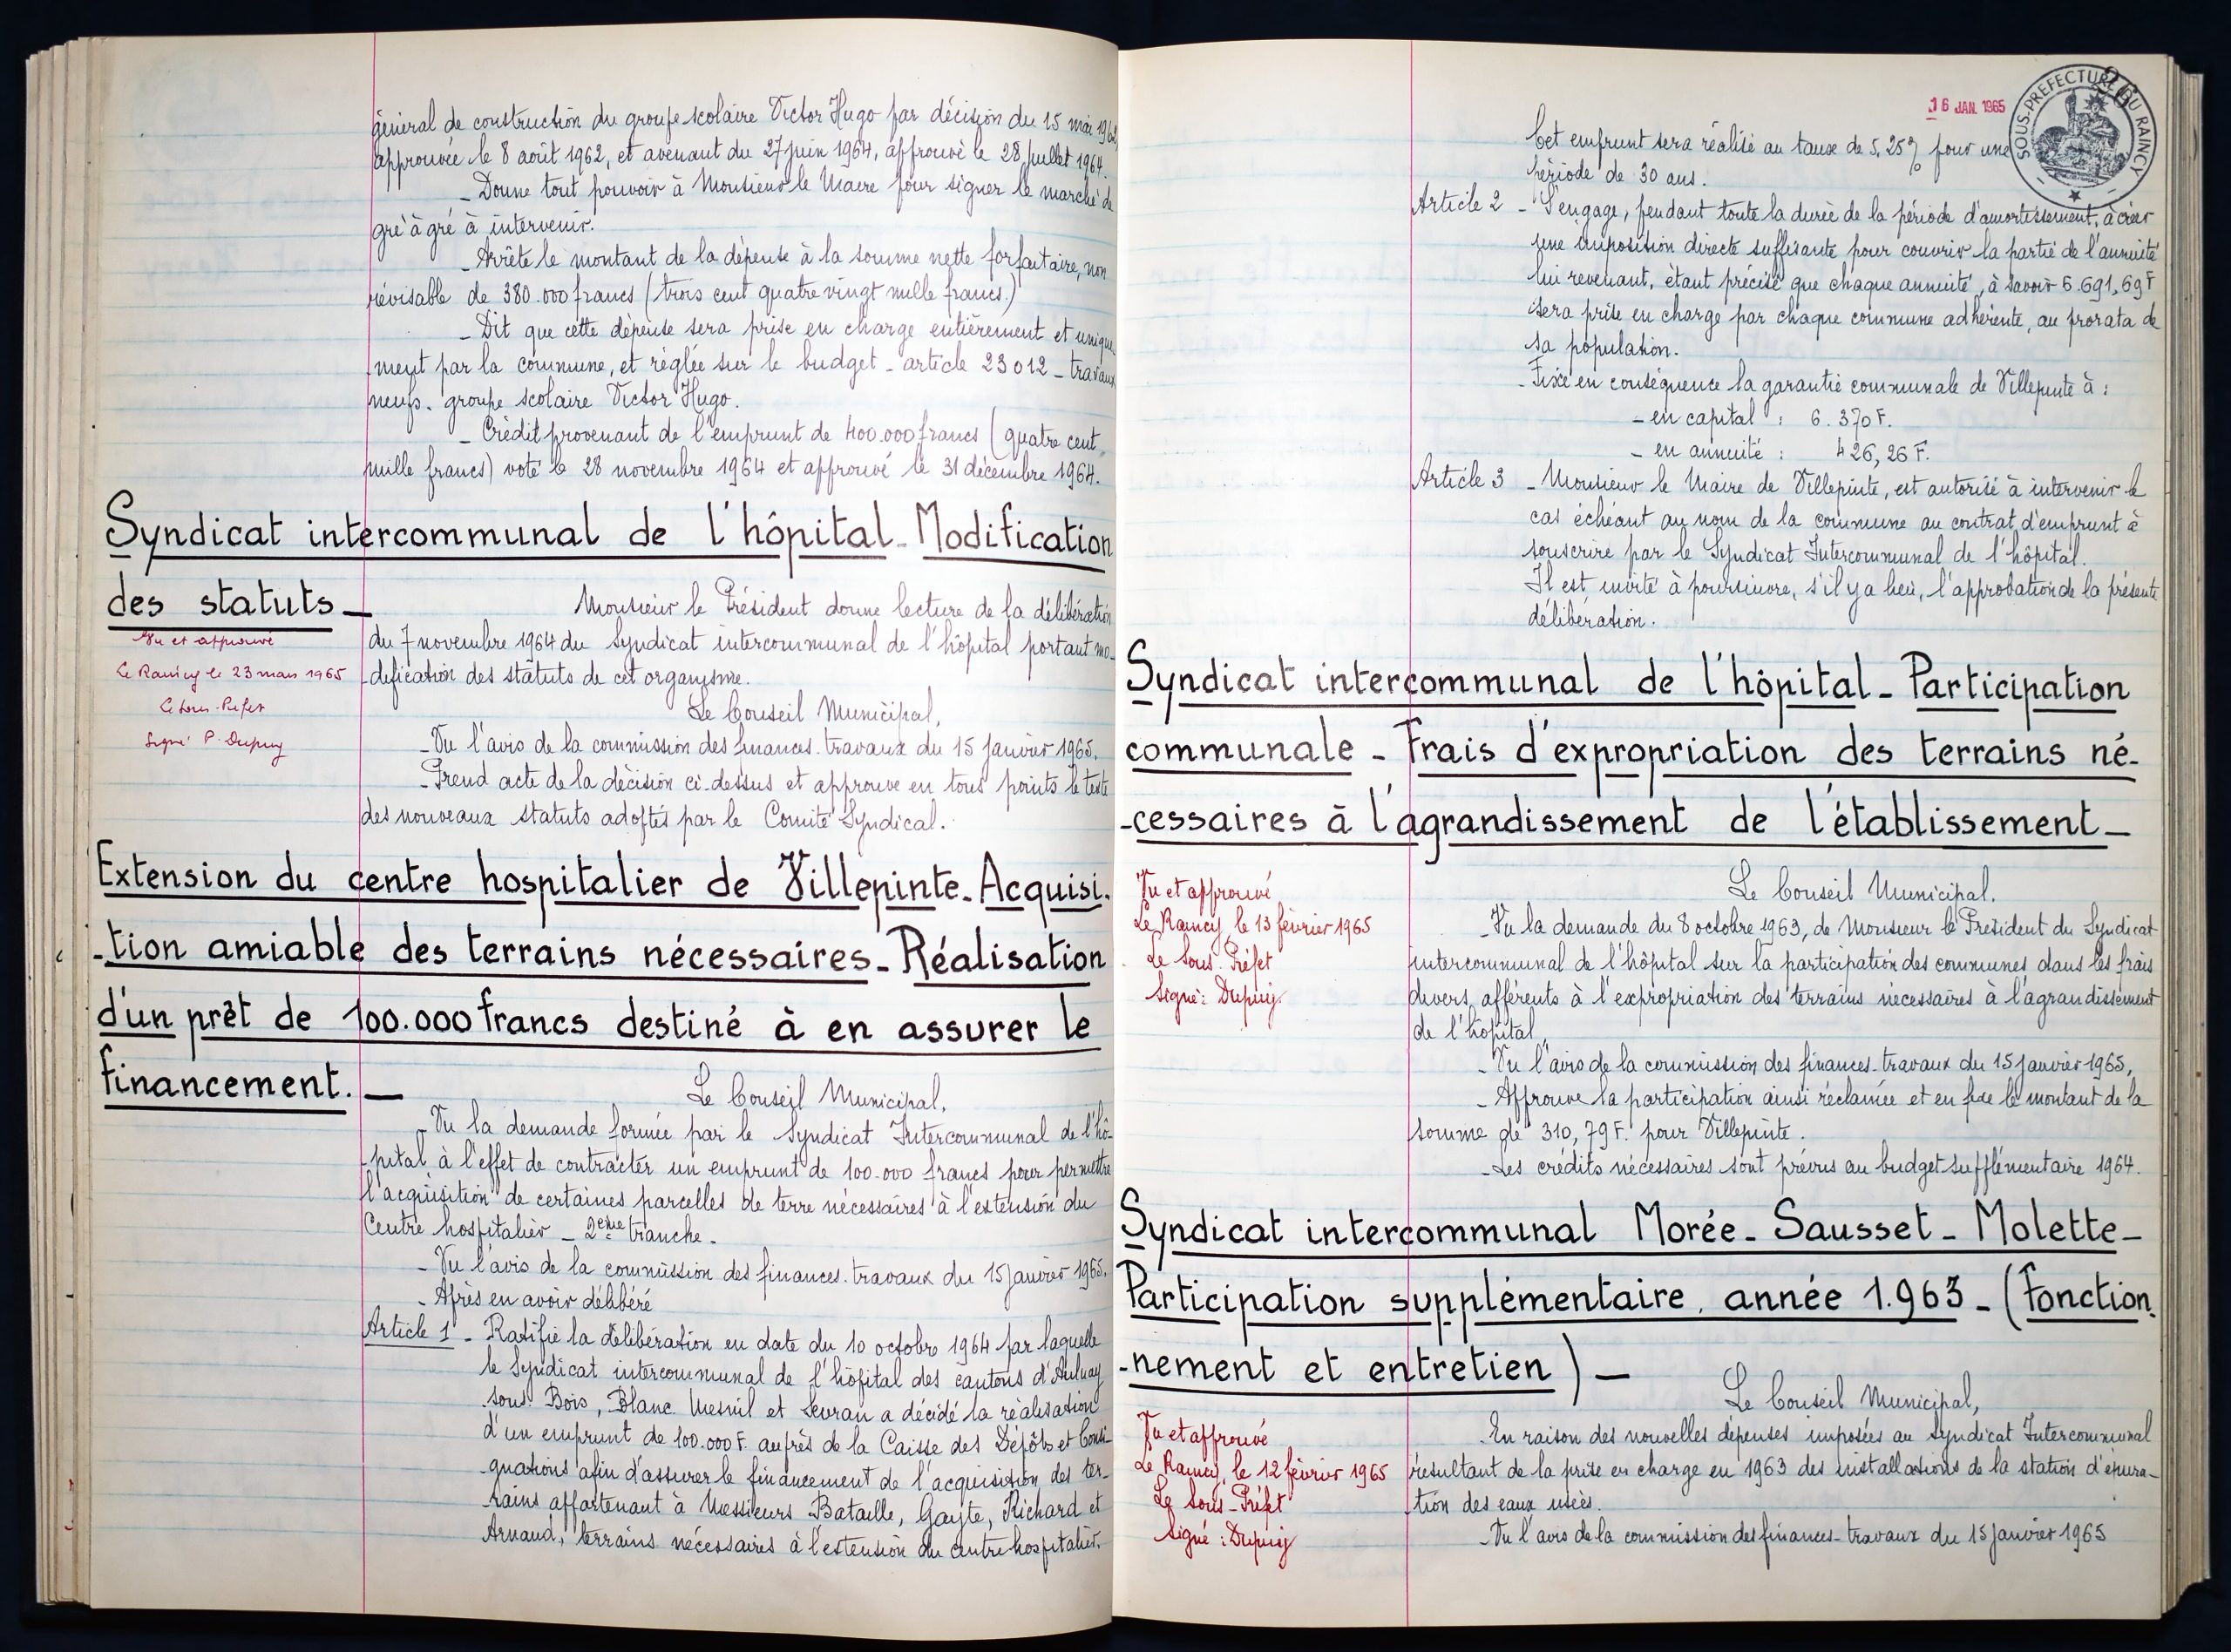 général de construction du groupe scolaire Victor Hugo par décision du 15 mai 1962,
approuvée le 8 août 1962, et avenant du 27 juin 1964, approuvé le 28 juillet 1964.
_ Donne tout pouvoir à Monsieur le Maire pour signer le marché de
gré à gré à intervenir.
_ Arrête le montant de la dépense à la somme nette forfaitaire, non
révisable de 380.000 francs (trois cent quatre vingt mille francs.)
_ Dit que cette dépense sera prise en charge entièrement et unique-
ment par la commune, et réglée sur le budget _ article 23012 _ travaux
neufs. groupe scolaire Victor Hugo.
_ Crédit provenant de l'emprunt de 400.000 francs (quatre cent
mille francs) voté le 28 novembre 1964 et approuvé le 31 décembre 1964.
Syndicat intercommunal de l'hôpital_ Modification
des statuts _
Monsieur le Président donne lecture de la délibération
Vu et approuvé
du 7 novembre 1964 du Syndicat intercommunal de l'hôpital portant mo-
Le Raincy le 23 mars 1965
-dification des statuts de cet organisme.
Le Sous-Préfet
Le Conseil Municipal,
Signé P. Dupuy
_Vu l'avis de la commission des finances-travaux du 15 janvier 1965.
_Prend acte de la décision ci-dessus et approuve en tous points le texte
des nouveaux statuts adoptés par le Comité Syndical.
Extension du centre hospitalier de Villepinte_ Acquisi-
-tion amiable des terrains nécessaires_ Réalisation
d'un prêt de 100.000 francs destiné à en assurer le
financement. _
Le Conseil Municipal,
_ Vu la demande formée par le Syndicat Intercommunal de l'hô-
-pital à l'effet de contracter un emprunt de 100.000 francs pour permettre
l'acquisition de certaines parcelles de terre nécessaires à l'extension du
Centre hospitalier _ 2ème tranche.
_ Vu l'avis de la commission des finances-travaux du 15 janvier 1965.
_ Après en avoir délibéré
Article 1 _ Ratifie la délibération en date du 10 octobre 1964 par laquelle
le Syndicat intercommunal de l'hôpital des cantons d'Aulnay
sous Bois, Blanc Mesnil et Sevran a décidé la réalisation
d'un emprunt de 100.000 F. auprès de la Caisse des Dépôts et Consi-
-gnations afin d'assurer le financement de l'acquisition des ter-
-rains appartenant à Messieurs Bataille, Gayte, Richard et
Arnaud, terrains nécessaires à l'extension du centre hospitalier.
16 JAN. 1965
SOUS-PREFECTURE DU RAINCY
Cet emprunt sera réalisé au taux de 5,25% pour une
période de 30 ans.
Article 2 _ S'engage, pendant toute la durée de la période d'amortissement, à créer
une imposition directe suffisante pour couvrir la partie de l'annuité
lui revenant, étant précisé que chaque annuité, à savoir 6.691,69 F
sera prise en charge par chaque commune adhérente, au prorata de
sa population.
_ Fixe en conséquence la garantie communale de Villepinte à :
_ en capital : 6.370 F.
_ en annuité : 426,26 F.
Article 3 _ Monsieur le Maire de Villepinte, est autorisé à intervenir le
cas échéant au nom de la commune au contrat d'emprunt à
souscrire par le Syndicat Intercommunal de l'hôpital.
Il est invité à poursuivre, s'il y a lieu, l'approbation de la présente
délibération.
Syndicat intercommunal de l'hôpital_ Participation
communale _ Frais d'expropriation des terrains né-
-cessaires à l'agrandissement de l'établissement_
Le Conseil Municipal.
Vu et approuvé
Le Raincy, le 13 février 1965
Le Sous-Préfet
Signé: Dupuy.
_Vu la demande du 8 octobre 1963, de Monsieur le Président du Syndicat
intercommunal de l'hôpital sur la participation des communes dans les frais
divers afférents à l'expropriation des terrains nécessaires à l'agrandissement
de l'hôpital,
_ Vu l'avis de la commission des finances-travaux du 15 janvier 1965,
_ Approuve la participation ainsi réclamée et en fixe le montant de la
somme de 310,79 F. pour Villepinte.
_Les crédits nécessaires sont prévus au budget supplémentaire 1964.
Syndicat intercommunal Morée_ Sausset_ Molette_
Participation supplémentaire, année 1.963_ (Fonction-
-nement et entretien) _
Le Conseil Municipal,
Vu et approuvé
Le Raincy, le 12 février 1965
Le Sous-Préfet
Signé : Dupuy
En raison des nouvelles dépenses imposées au Syndicat Intercommunal
résultant de la prise en charge en 1963 des installations de la station d'épura-
-tion des eaux usées.
_Vu l'avis de la commission des finances-travaux du 15 janvier 1965